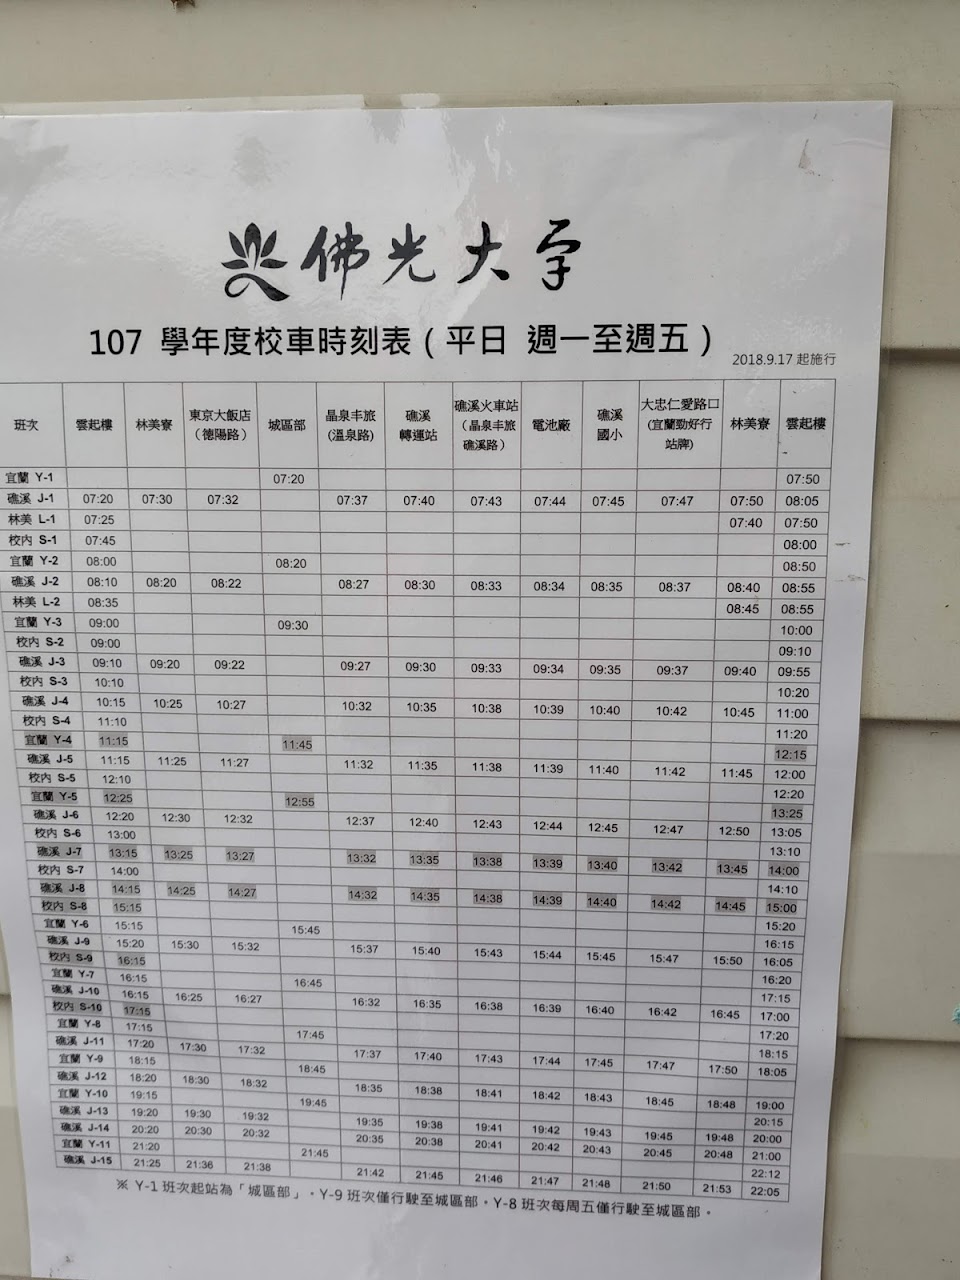 佛光大學
107 學年度校車時刻表（平日 週一至週五）
2018.9.17 起施行
班次 雲起樓 林美寮 東京大飯店（德陽路） 城區部 晶泉丰旅(溫泉路) 礁溪轉運站 礁溪火車站（晶泉丰旅礁溪路） 電池廠 礁溪國小 大忠仁愛路口(宜蘭勁好行站牌) 林美寮 雲起樓
宜蘭 Y-1 07:20 07:50
礁溪 J-1 07:20 07:30 07:32 07:37 07:40 07:43 07:44 07:45 07:47 07:50 08:05
林美 L-1 07:25 07:40 07:50
校內 S-1 07:45 08:00
宜蘭 Y-2 08:00 08:20 08:50
礁溪 J-2 08:10 08:20 08:22 08:27 08:30 08:33 08:34 08:35 08:37 08:40 08:55
林美 L-2 08:35 08:45 08:55
宜蘭 Y-3 09:00 09:30 10:00
校內 S-2 09:00 09:10
礁溪 J-3 09:10 09:20 09:22 09:27 09:30 09:33 09:34 09:35 09:37 09:40 09:55
校內 S-3 10:10 10:20
礁溪 J-4 10:15 10:25 10:27 10:32 10:35 10:38 10:39 10:40 10:42 10:45 11:00
校內 S-4 11:10 11:20
宜蘭 Y-4 11:15 11:45 12:15
礁溪 J-5 11:15 11:25 11:27 11:32 11:35 11:38 11:39 11:40 11:42 11:45 12:00
校內 S-5 12:10 12:20
宜蘭 Y-5 12:25 12:55 13:25
礁溪 J-6 12:20 12:30 12:32 12:37 12:40 12:43 12:44 12:45 12:47 12:50 13:05
校內 S-6 13:00 13:10
礁溪 J-7 13:15 13:25 13:27 13:32 13:35 13:38 13:39 13:40 13:42 13:45 14:00
校內 S-7 14:00 14:10
礁溪 J-8 14:15 14:25 14:27 14:32 14:35 14:38 14:39 14:40 14:42 14:45 15:00
校內 S-8 15:15 15:20
宜蘭 Y-6 15:15 15:45 16:15
礁溪 J-9 15:20 15:30 15:32 15:37 15:40 15:43 15:44 15:45 15:47 15:50 16:05
校內 S-9 16:15 16:20
宜蘭 Y-7 16:15 16:45 17:15
礁溪 J-10 16:15 16:25 16:27 16:32 16:35 16:38 16:39 16:40 16:42 16:45 17:00
校內 S-10 17:15 17:20
宜蘭 Y-8 17:15 17:45 18:15
礁溪 J-11 17:20 17:30 17:32 17:37 17:40 17:43 17:44 17:45 17:47 17:50 18:05
宜蘭 Y-9 18:15 18:45
礁溪 J-12 18:20 18:30 18:32 18:35 18:38 18:41 18:42 18:43 18:45 18:48 19:00
宜蘭 Y-10 19:15 19:45 20:15
礁溪 J-13 19:20 19:30 19:32 19:35 19:38 19:41 19:42 19:43 19:45 19:48 20:00
礁溪 J-14 20:20 20:30 20:32 20:35 20:38 20:41 20:42 20:43 20:45 20:48 21:00
宜蘭 Y-11 21:20 21:45 22:12
礁溪 J-15 21:25 21:36 21:38 21:42 21:45 21:46 21:47 21:48 21:50 21:53 22:05
※ Y-1 班次起站為「城區部」。Y-9 班次僅行駛至城區部。Y-8 班次每周五僅行駛至城區部。